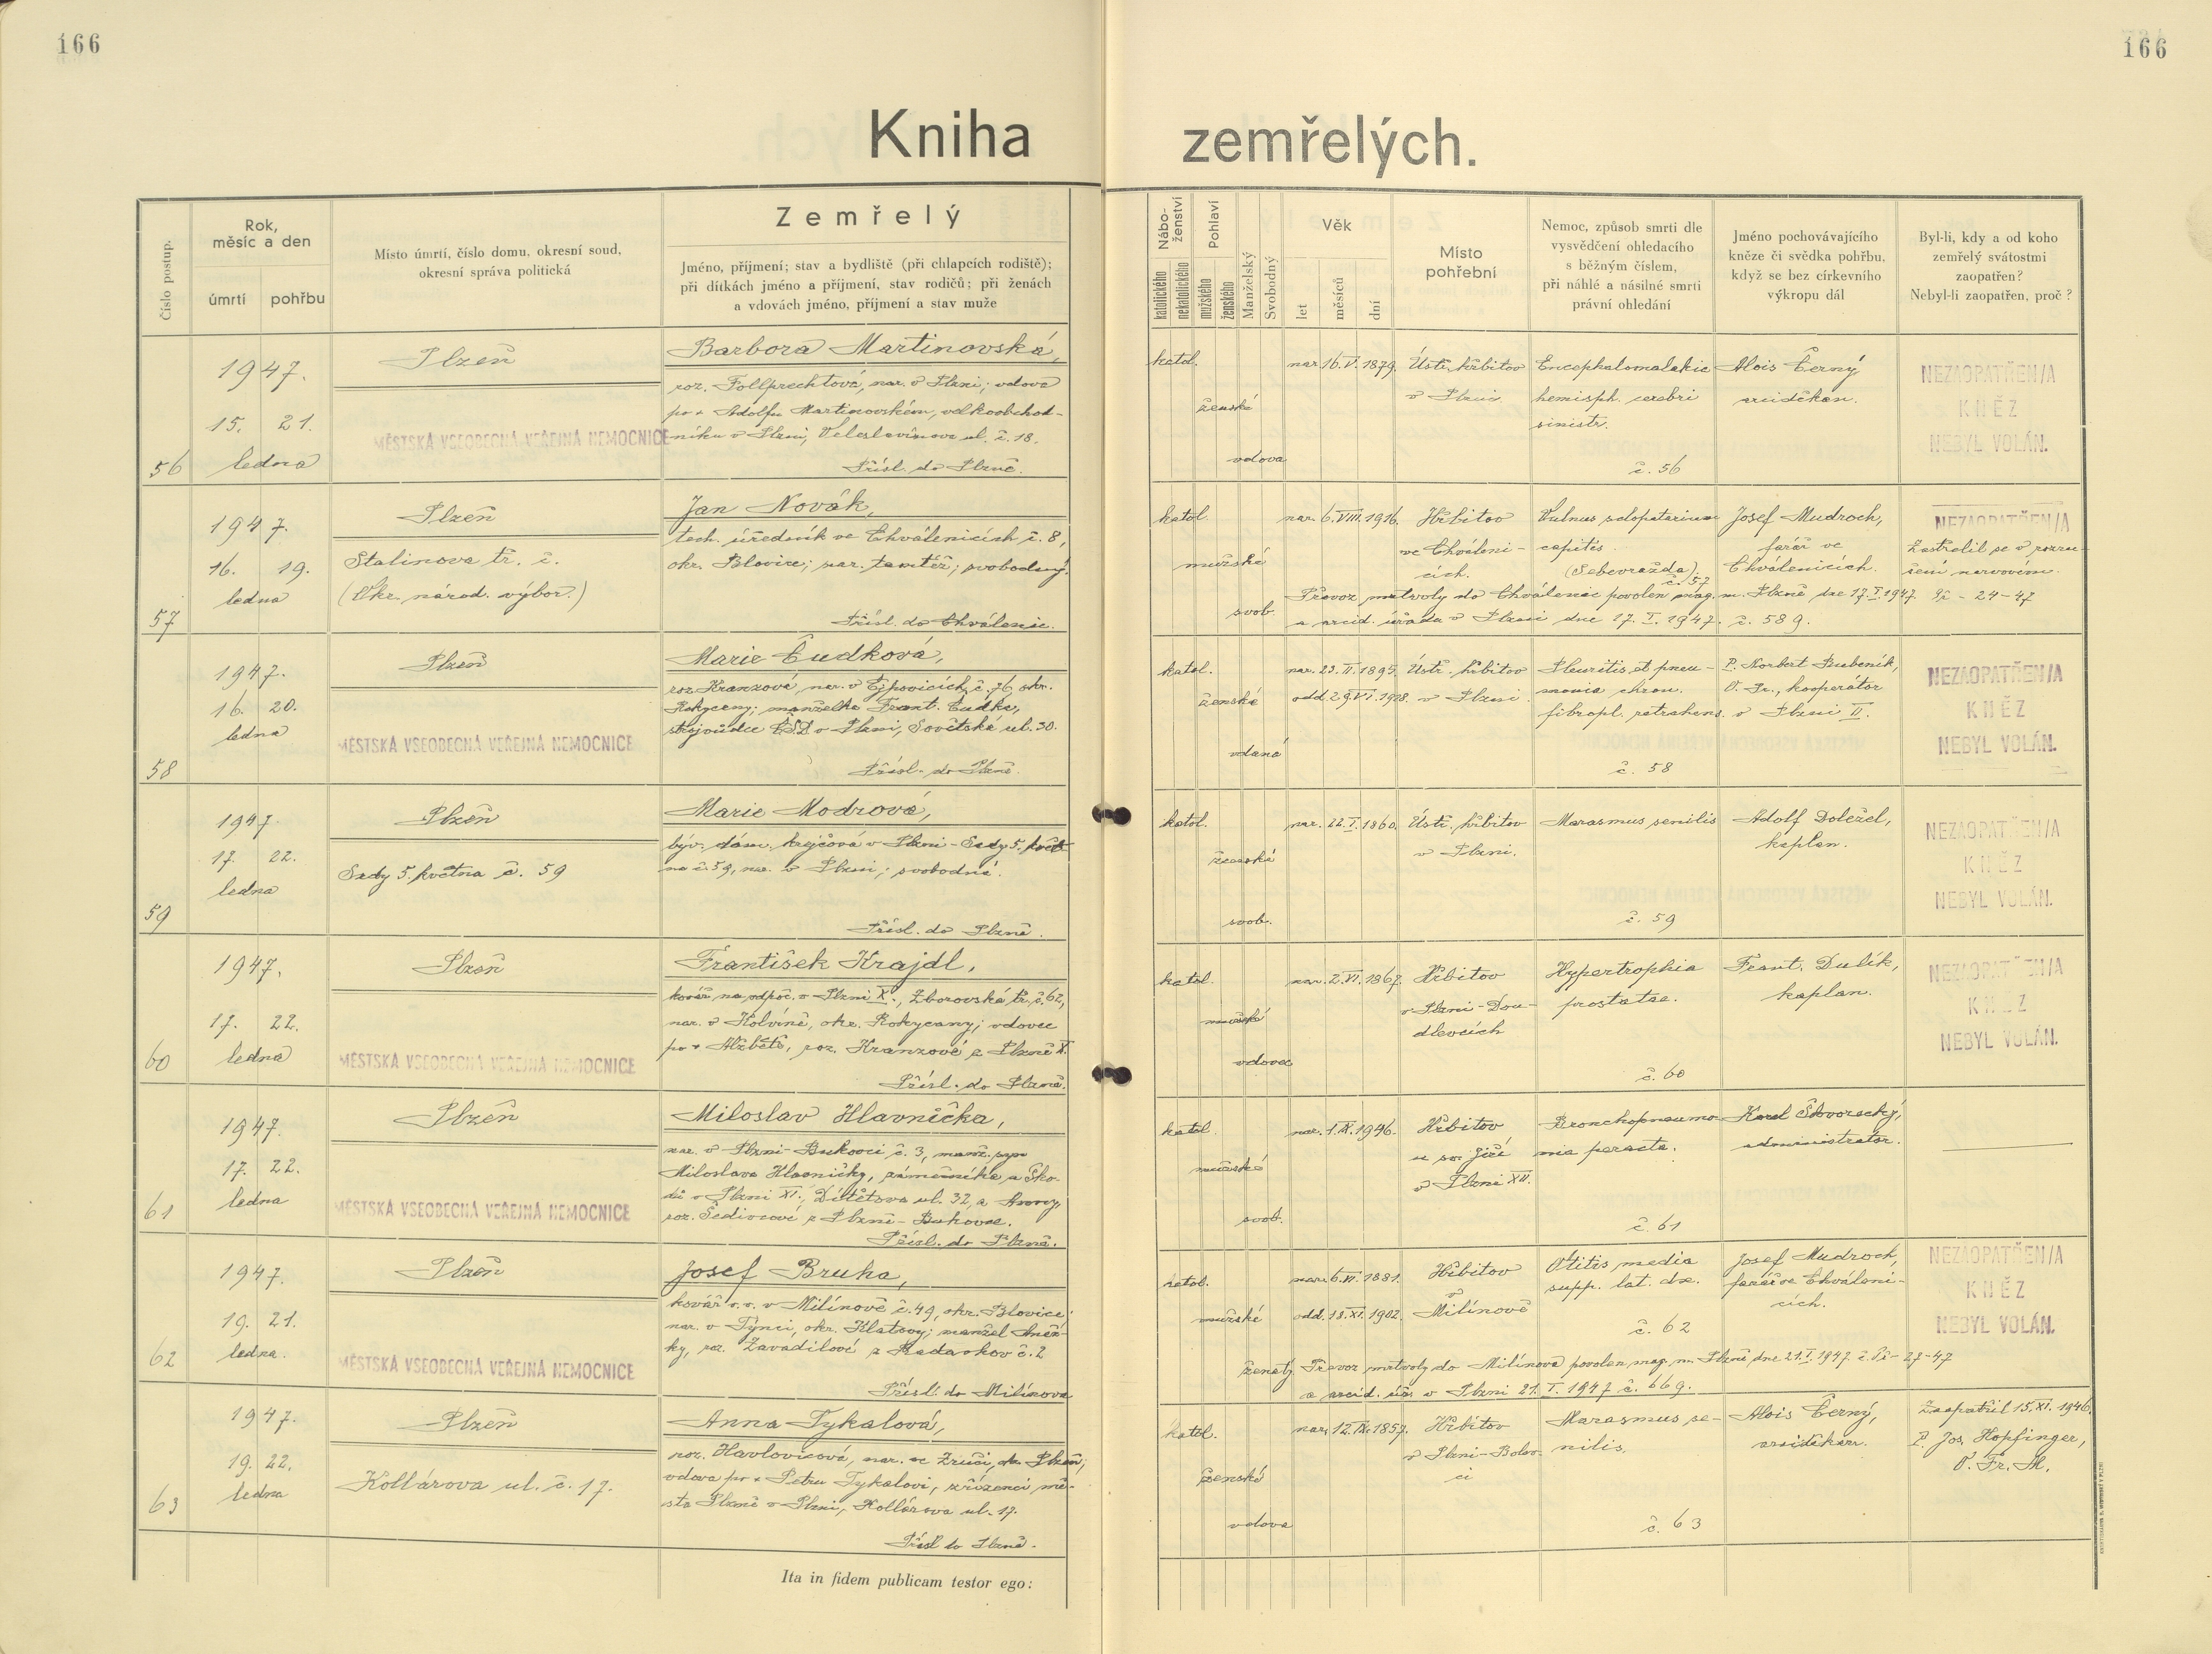 166
166
Kniha zemřelých.
Číslo postup.
Rok,
měsíc a den
úmrtí
pohřbu
Místo úmrtí, číslo domu, okresní soud,
okresní správa politická
Zemřelý
Jméno, příjmení; stav a bydliště (při chlapcích rodiště);
při dítkách jméno a příjmení, stav rodičů; při ženách
a vdovách jméno, příjmení a stav muže
Nábo-
ženství
katolického
nekatolického
Pohlaví
mužského
ženského
Manželský
Svobodný
Věk
let
měsíců
dní
Místo
pohřební
Nemoc, způsob smrti dle
vysvědčení ohledacího
s běžným číslem,
při náhlé a násilné smrti
právní ohledání
Jméno pochovávajícího
kněze či svědka pohřbu,
když se bez církevního
výkropu dál
Byl-li, kdy a od koho
zemřelý svátostmi
zaopatřen?
Nebyl-li zaopatřen, proč?
56
1947.
15. 21.
ledna
Plzeň
MĚSTSKÁ VŠEOBECNÁ VEŘEJNÁ NEMOCNICE
Barbora Martinovská,
roz. Follprechtová, nar. v Plzni; vdova
po + Adolfu Martinovském, velkoobchod-
níku v Plzni, Veleslavínova ul. č. 18.
Přísl. do Plzně.
katol.
ženské
vdova
nar. 16.V.1879.
Ústř. hřbitov
v Plzni
Encephalomalakie
hemisph. cerebri
sinistr.
č. 56
Alois Černý
arciděkan.
NEZAOPATŘEN/A
KNĚZ
NEBYL VOLÁN.
57
1947.
16. 19.
ledna
Plzeň
Stalinova tř. č.
(Okr. národ. výbor.)
Jan Novák,
tech. úředník ve Chválenicích č. 8,
okr. Blovice; nar. tamtéž; svobodný.
Přísl. do Chválenic.
katol.
mužské
svob.
nar. 6.VIII.1916.
Hřbitov
ve Chváleni-
cích.
Vulnus sclopetarium
capitis.
(Sebevražda).
č. 57
Josef Mudroch,
farář ve
Chválenicích.
NEZAOPATŘEN/A
Zastřelil se v rozru-
šení nervovém.
Převoz mrtvoly do Chválenic povolen mag. m. Plzně dne 17.I.1947 Př - 24-47
a arcid. úřadu v Plzni dne 17.I.1947. č. 589.
58
1947.
16. 20.
ledna
Plzeň
MĚSTSKÁ VŠEOBECNÁ VEŘEJNÁ NEMOCNICE
Marie Čudková,
roz. Kranzová, nar. v Ejpovicích č. 76, okr.
Rokycany; manželka Frant. Čudky,
strojvůdce ČSD v Plzni, Sovětská ul. 30.
Přísl. do Plzně.
katol.
ženské
vdaná
nar. 23.II.1895.
odd. 29.VI.1918.
Ústř. hřbitov
v Plzni.
Pleuritis et pneu-
monia chron.
fibropl. retrahens.
č. 58
P. Norbert Bubeník,
O. Fr., kooperátor
v Plzni II.
NEZAOPATŘEN/A
KNĚZ
NEBYL VOLÁN.
59
1947.
17. 22.
ledna
Plzeň
Sady 5. května č. 59
Marie Modrová,
býv. dám. krejčová v Plzni - Sady 5. květ-
na č. 59, nar. v Plzni; svobodná.
Přísl. do Plzně.
katol.
ženské
svob.
nar. 22.I.1860.
Ústř. hřbitov
v Plzni.
Marasmus senilis
č. 59
Adolf Doležel,
kaplan.
NEZAOPATŘEN/A
KNĚZ
NEBYL VOLÁN.
60
1947.
17. 22.
ledna
Plzeň
MĚSTSKÁ VŠEOBECNÁ VEŘEJNÁ NEMOCNICE
František Krajdl,
kovář na odpoč. v Plzni X., Zborovská tř. č. 62,
nar. v Holvíně, okr. Rokycany; vdovec
po + Alžbětě, roz. Kranzové z Plzně X.
Přísl. do Plzně.
katol.
mužské
vdovec
nar. 2.VI.1867.
Hřbitov
v Plzni-Dou-
dlevcích
Hypertrophia
prostatae.
č. 60
Frant. Dulík,
kaplan.
NEZAOPATŘEN/A
KNĚZ
NEBYL VOLÁN.
61
1947.
17. 22.
ledna
Plzeň
MĚSTSKÁ VŠEOBECNÁ VEŘEJNÁ NEMOCNICE
Miloslav Hlavnička,
nar. v Plzni-Bukovci č. 3, manž. syn
Miloslava Hlavničky, zámečníka u Ško-
dů v Plzni XI., ul. 32, a Anny,
roz. Šedivcové z Plzně-Bukovce.
Přísl. do Plzně.
katol.
mužské
svob.
nar. 1.IX.1946.
Hřbitov
u sv. Jiří
v Plzni XII.
Bronchopneumo-
nia peracta.
č. 61
Karel Škvorecký,
administrátor.
62
1947.
19. 21.
ledna.
Plzeň
MĚSTSKÁ VŠEOBECNÁ VEŘEJNÁ NEMOCNICE
Josef Bruha,
kovář v. v. v Milínově č. 49, okr. Blovice;
nar. v Týnci, okr. Klatovy; manžel Anež-
ky, roz. Zavadilové z č. 2
Přísl. do Milínova
katol.
mužské
ženatý
nar. 6.VI.1881.
odd. 18.XI.1902.
Hřbitov
v
Milínově
Otitis media
supp. lat. dx.
č. 62
Josef Mudroch,
farář ve Chváleni-
cích.
NEZAOPATŘEN/A
KNĚZ
NEBYL VOLÁN.
Převoz mrtvoly do Milínova povolen mag. m. Plzně dne 21.I.1947. č. Př - 27-47
a arcid. úř. v Plzni 21.I.1947 č. 669.
63
1947.
19. 22.
ledna
Plzeň
Kollárova ul. č. 17.
Anna Tykalová,
roz. Havlovicová, nar. ve Zruči, okr. Plzeň;
vdova po + Petru Tykalovi, zřízenci mě-
sta Plzně v Plzni, Kollárova ul. 17.
Přísl. do Plzně.
katol.
ženské
vdova
nar. 12.IX.1857.
Hřbitov
v Plzni-Bolev-
ci
Marasmus se-
nilis.
č. 63
Alois Černý,
arciděkan.
Zaopatřil 15.XI.1946.
P. Jos. Hopfinger,
O. Fr. M.
Ita in fidem publicam testor ego: